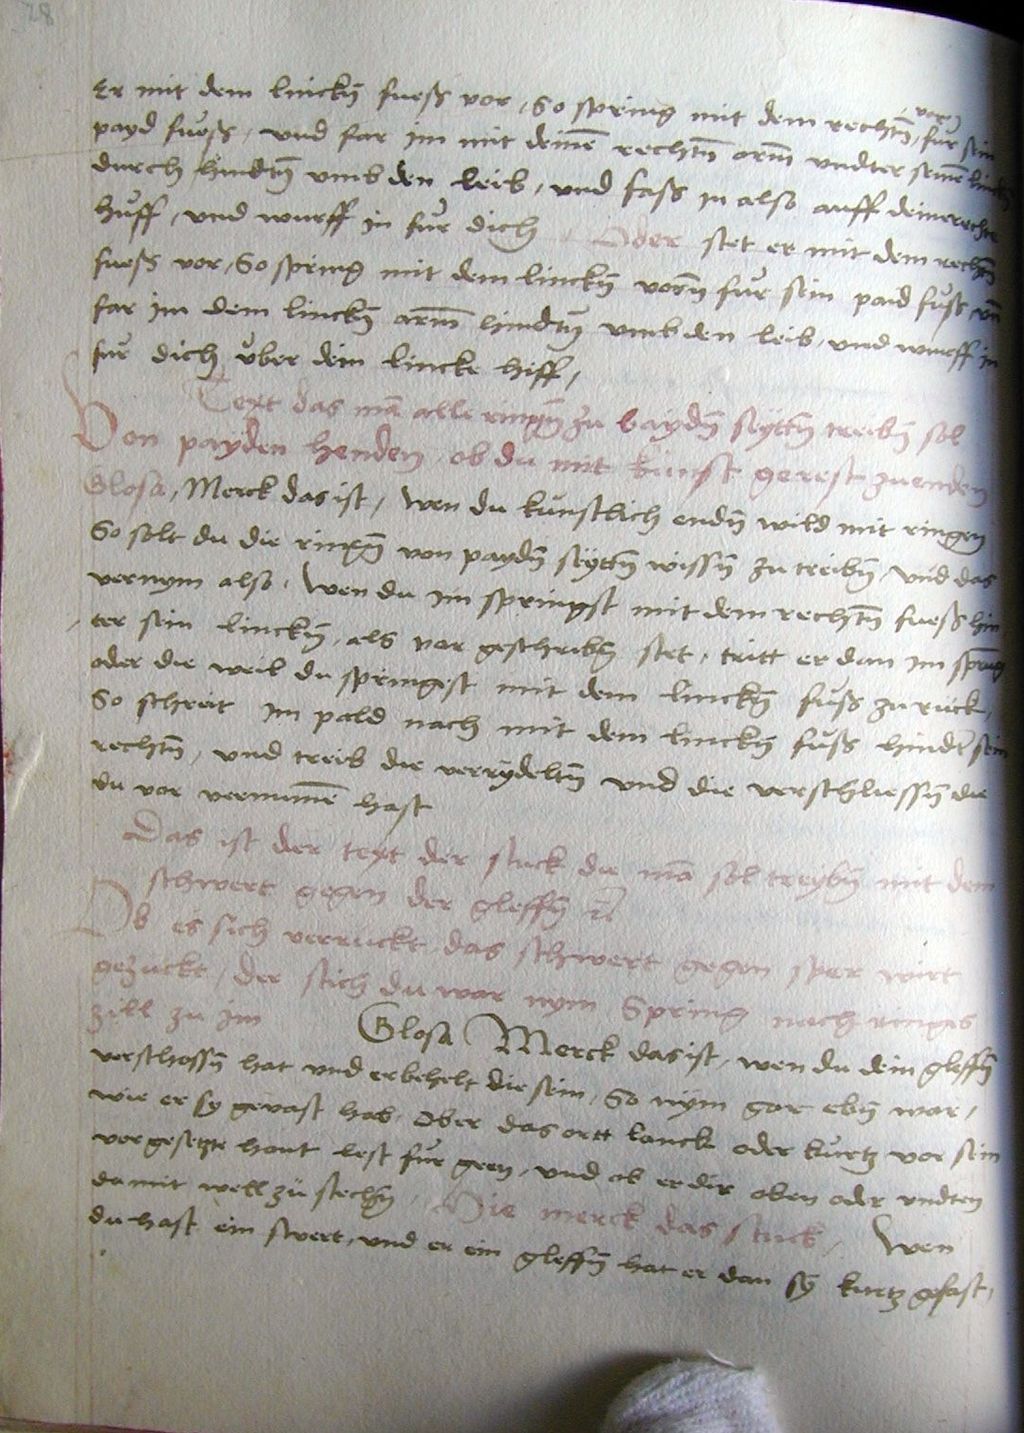 Er mit dem linckñ fuess vor, So spring mit dem rechtñ, vorn fur sein
payd fuess, vnd far im mit deinē rechtñ arm vndter seinē linckñ
durch hindtñ vmb den leib, vnd fass in also auff dein rechte
huff, vnd wurff in fur dich Oder stet er mit dem rechtñ
fuess vor, So spring mit dem linckñ vorñ fur sein paid fuss, vñ
far im dem linckñ arm hindtñ vmb den leib, vnd wurff in
fur dich vber dein lincke hiff,
Text das mā alle ringñ zu baydñ seyttñ treibñ sol
Von payden henden, ob du mit kunst gerest zu enden
Glosa, Merck das ist, Wen du kunstlich endñ wild mit ringen
So solt du die ringñ von paydñ seyttñ wissñ zu treibñ, vnd das
vernym also, Wen du im springst mit dem rechtñ fuess hin
ter sein linckñ, als vor geschribñ stet, tritt er dan im sprung
oder die weil du springest mit dem linckñ fuss zu ruck,
So schreit im pald nach mit dem linckñ fuss hindter sein
rechtñ, vnd treib die verrydeltñ vnd die verschliessñ die
du vor vernumē hast
Das ist der text der stuck die mā sol treybñ mit dem
schwert gegen der gleffñ
Ob es sich verruckt, das schwert gegen sper wirt
gezuckt, Der stich du war nym Spring nach ringes
zill zu im Glosa Merck das ist, wen du dein gleffñ
verschossñ hat vnd er behelt die sein, So nym gar ebñ war,
wie er sy gevast hab, Ober das ortt lanck oder kurtz vor sein
vorgesetzte hant lest fur geen, vnd ob er dir oben oder vndten
damit well zu stechñ, Die merck das stuck, Wen
du hast ein swert, vnd er ein gleffñ hat er dan sy kurtz gefast,